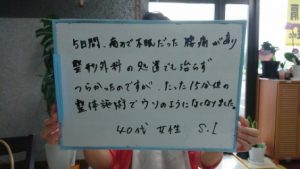 5日間、痛みで不眠だった 腰痛があり
整形外科の処置でも治らず
つらかったのですが、たった15分位の
整体施術でウソのようになくなりました。
40代 女性 S.I